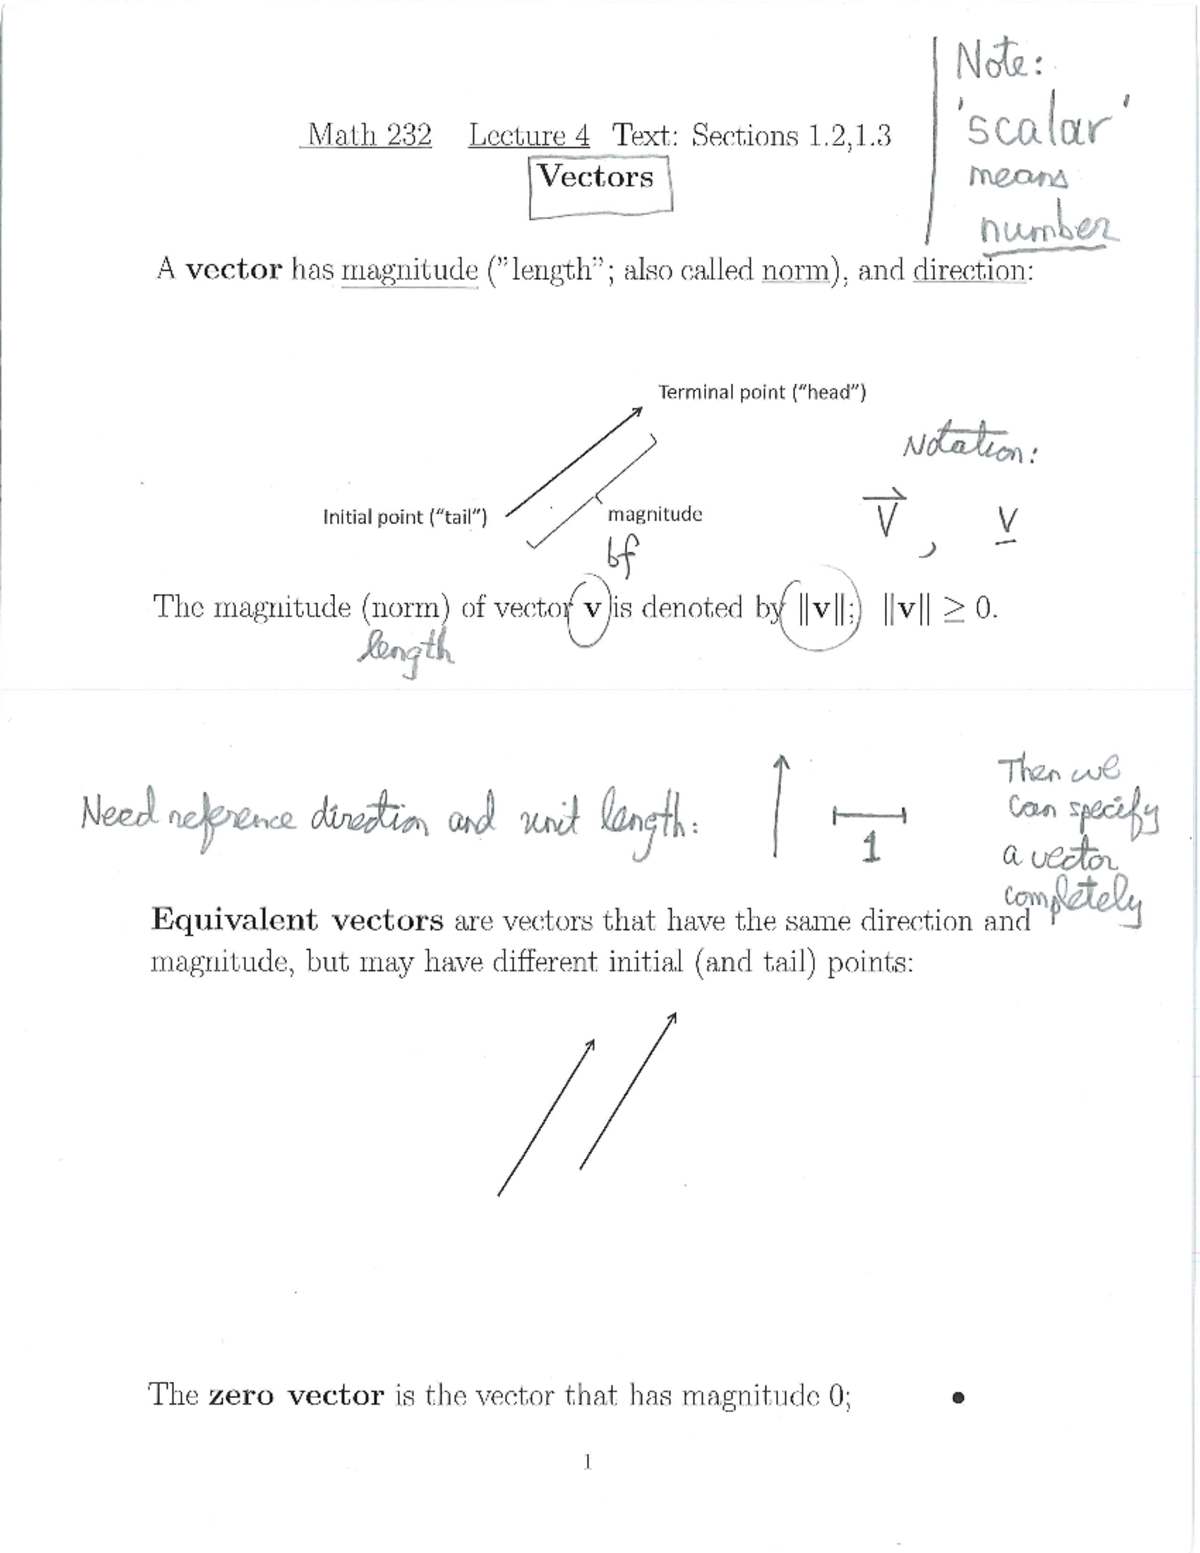 Note:
'scalar'
means
number
Math 232 Lecture 4 Text: Sections 1.2,1.3
Vectors
A vector has magnitude ("length"; also called norm), and direction:
Terminal point ("head")
Notation:
Initial point ("tail")
magnitude
V⃗ , V̲
bf
The magnitude (norm) of vector v is denoted by ||v||; ||v|| ≥ 0.
length
Need reference direction and unit length:
1
Then we
can specify
a vector
completely
Equivalent vectors are vectors that have the same direction and
magnitude, but may have different initial (and tail) points:
The zero vector is the vector that has magnitude 0;
1